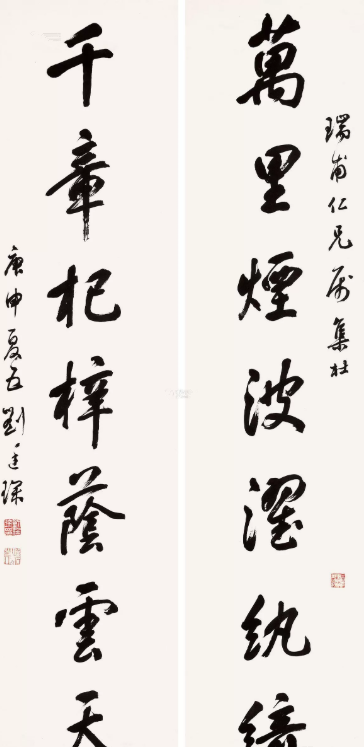 瑞甫仁兄属集杜
萬里煙波濯紈
千章杞梓蔭雲天
庚申夏五劉廷琛